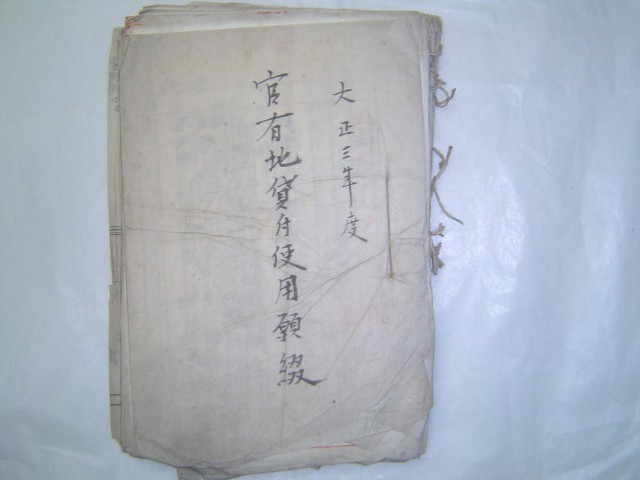 大正三年度
官有地貸付使用願綴